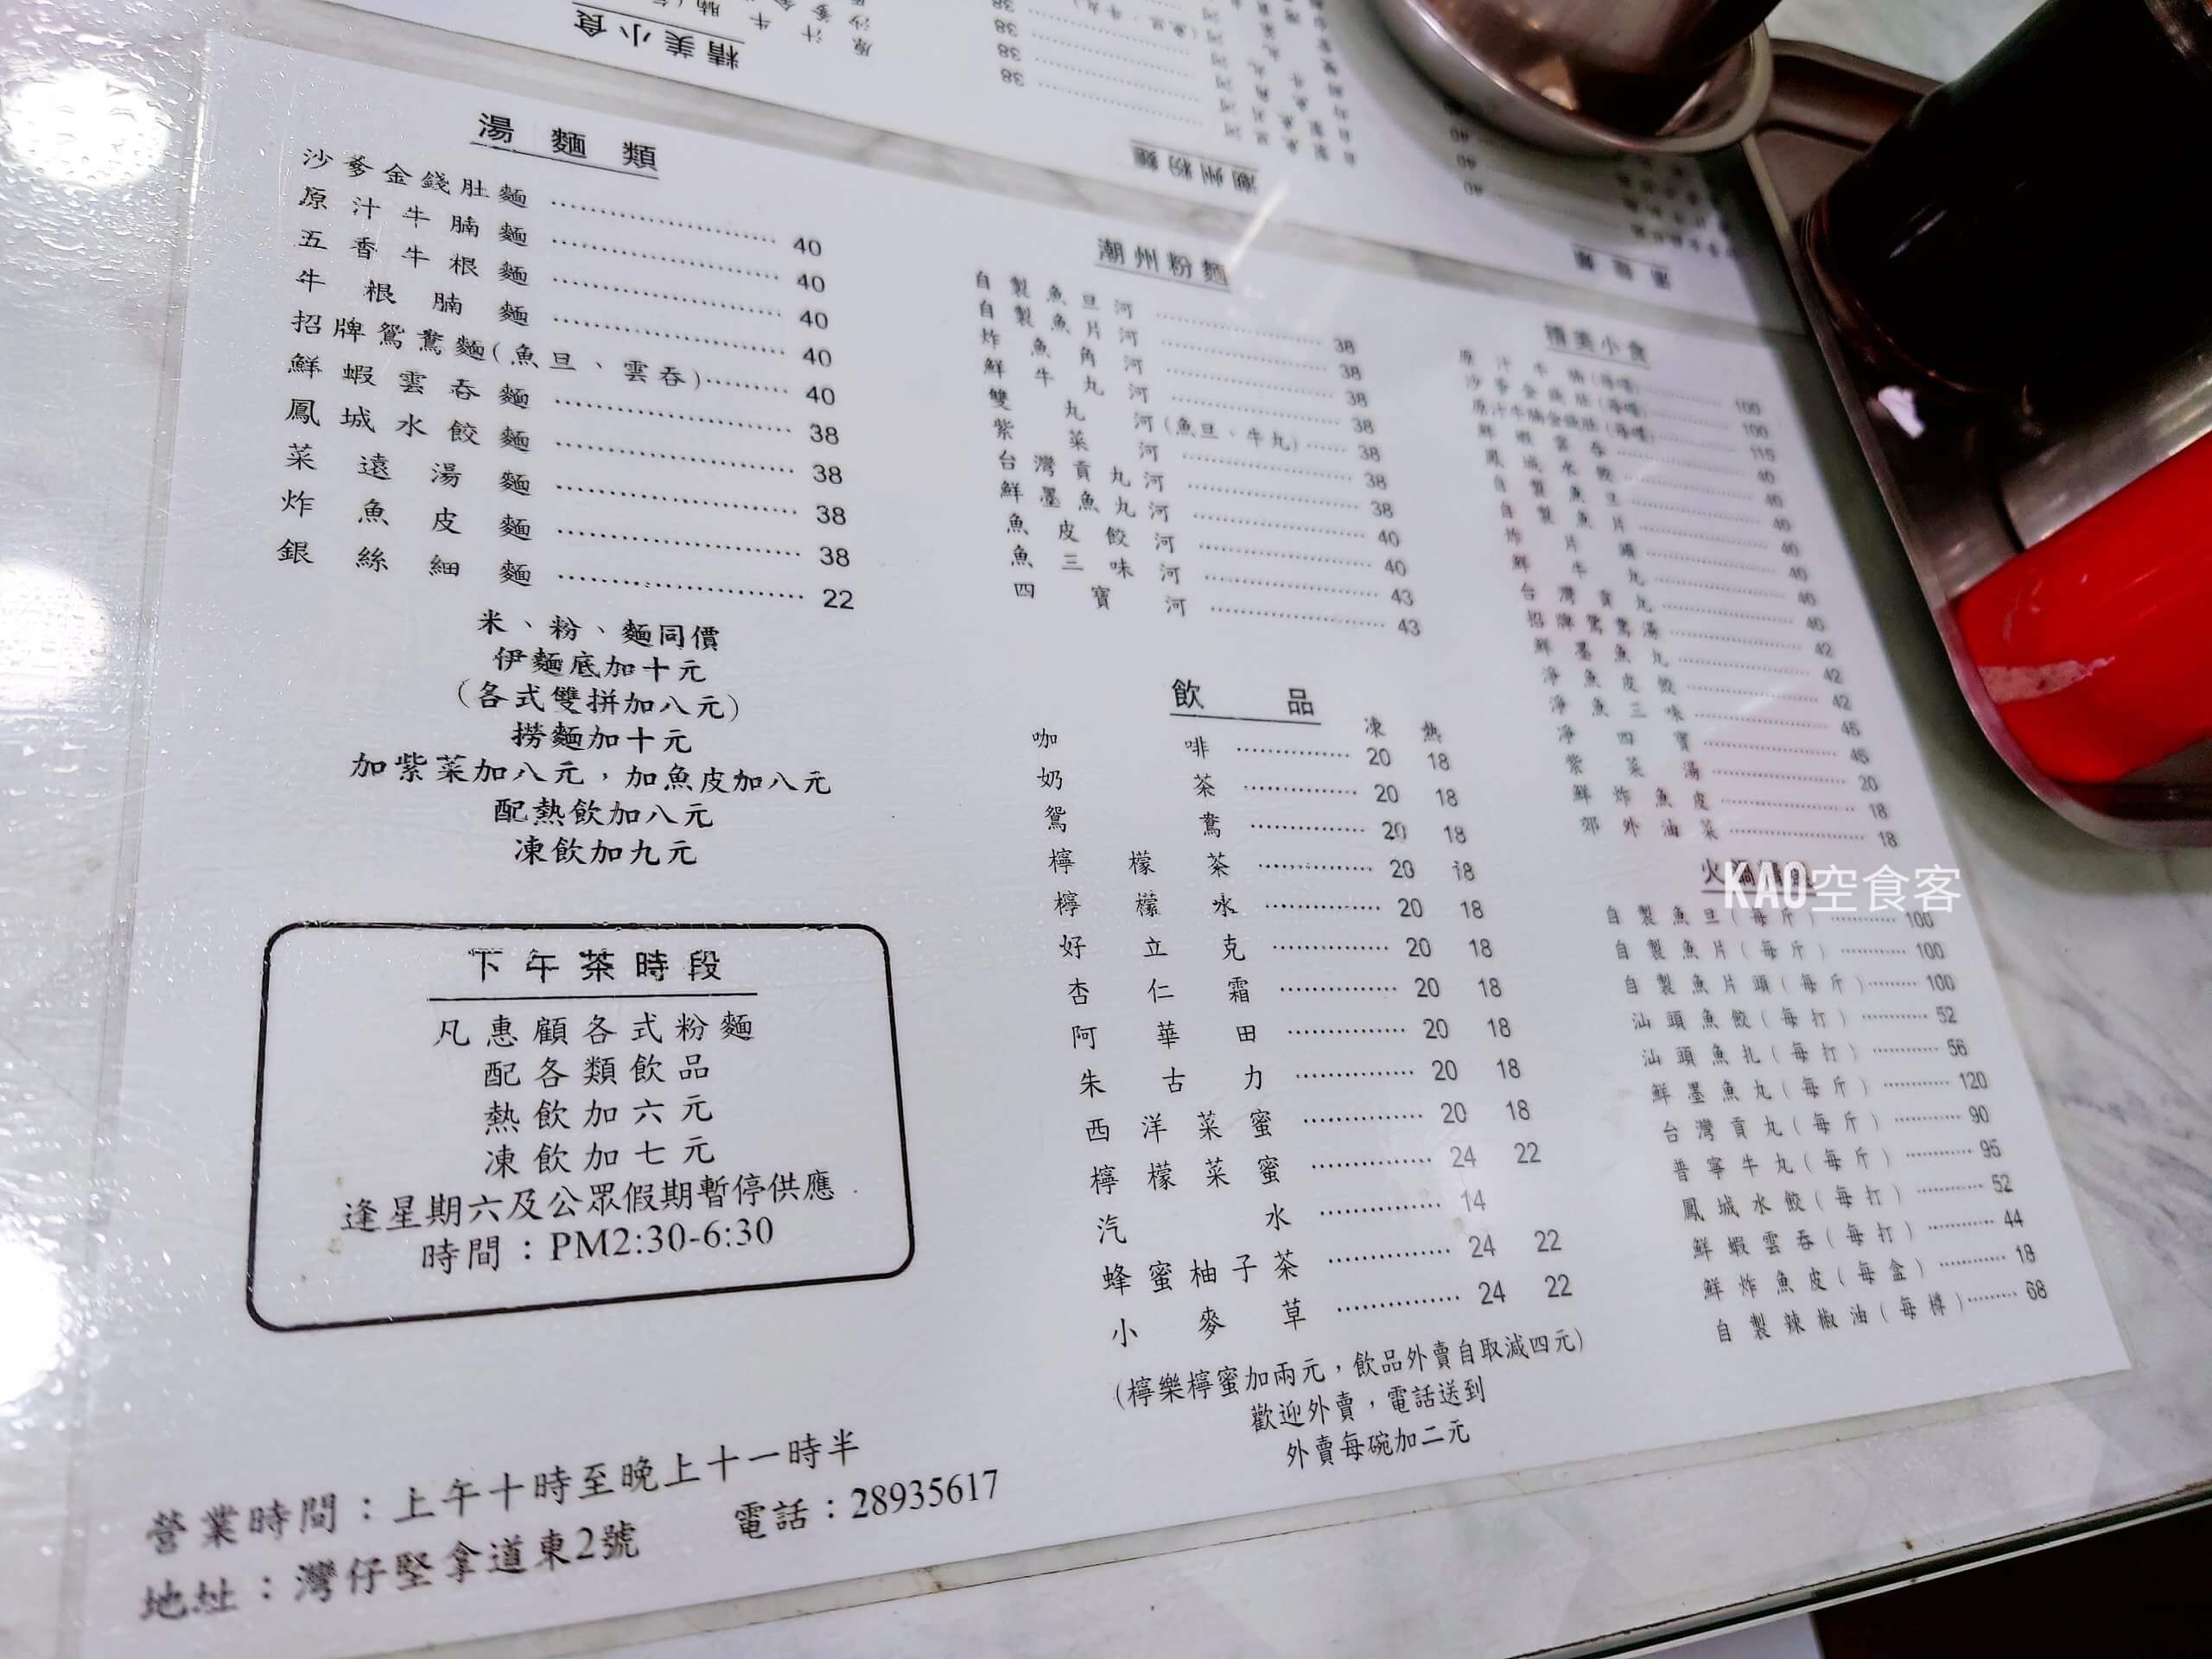 湯麵類
沙爹金錢肚麵 40
原汁牛腩麵 40
五香牛根麵 40
牛根腩麵 40
招牌鴛鴦麵(魚旦、雲吞) 40
鮮蝦雲吞麵 38
鳳城水餃麵 38
菜遠湯麵 38
炸魚皮麵 38
銀絲細麵 22
米、粉、麵同價
伊麵底加十元
(各式雙拼加八元)
撈麵加十元
加紫菜加八元,加魚皮加八元
配熱飲加八元
凍飲加九元
下午茶時段
凡惠顧各式粉麵
配各類飲品
熱飲加六元
凍飲加七元
逢星期六及公眾假期暫停供應
時間:PM2:30-6:30
潮州粉麵
自製魚旦河 38
自製魚片河 38
炸魚角河 38
鮮牛丸河 38
雙丸河(魚旦、牛丸) 38
紫菜河 38
台灣貢丸河 38
鮮墨魚丸河 40
魚皮餃河 40
魚三味河 43
四寶河 43
飲品
凍 熱
咖啡 20 18
奶茶 20 18
鴛鴦 20 18
檸檬茶 20 18
檸檬水 20 18
好立克 20 18
杏仁霜 20 18
阿華田 20 18
朱古力 20 18
西洋菜蜜 20 18
檸檬菜蜜 24 22
汽水 14
蜂蜜柚子茶 24 22
小麥草 24 22
(檸樂檸蜜加兩元,飲品外賣自取減四元)
歡迎外賣,電話送到
外賣每碗加二元
精美小食
原汁牛腩(每喱) 100
沙爹金錢肚(每喱) 100
原汁牛腩金錢肚(每喱) 115
鮮蝦雲吞 40
鳳城水餃 40
自製魚旦 40
自製魚片 40
炸片頭 40
鮮牛丸 40
台灣貢丸 40
招牌鴛鴦湯 42
鮮墨魚丸 42
淨魚皮餃 42
淨魚三味 45
淨四寶 45
紫菜湯 20
鮮炸魚皮 18
郊外油菜 18
KAO空食客
自製魚旦(每斤) 100
自製魚片(每斤) 100
自製魚片頭(每斤) 100
汕頭魚餃(每打) 52
汕頭魚扎(每打) 56
鮮墨魚丸(每斤) 120
台灣貢丸(每斤) 90
普寧牛丸(每斤) 95
鳳城水餃(每打) 52
鮮蝦雲吞(每打) 44
鮮炸魚皮(每盒) 18
自製辣椒油(每樽) 68
營業時間:上午十時至晚上十一時半
地址:灣仔堅拿道東2號 電話:28935617
精美小食
潮州粉麵